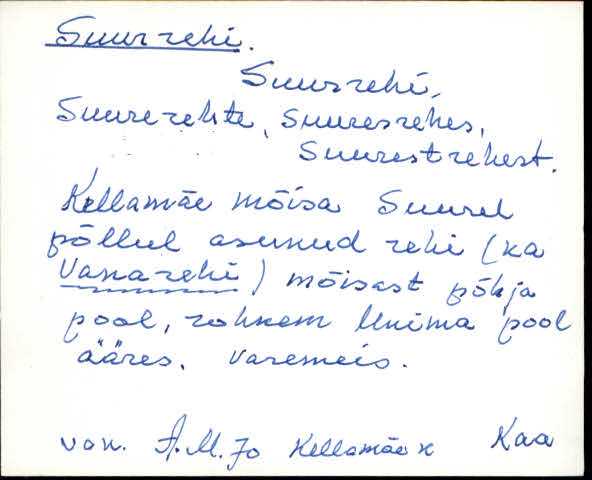 Suur rehi.
Suurrehi,
Suurerehte, Suuresrehes,
Suurestrehest.
Kellamäe mõisa Suurel
põllul asunud rehi (ka
Vanarehi) mõisast põhja
pool, rohkem Unima pool
ääres. Varemeis.
von. A.M.Jo Kellamäe k Kaa